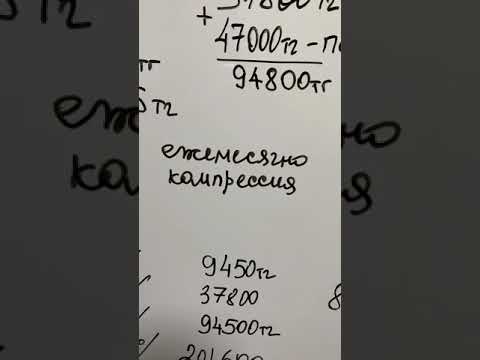 +
47000тг - П
94800тг
тг
5тг
ежемесячно
компрессия
9450тг
37800
94500тг